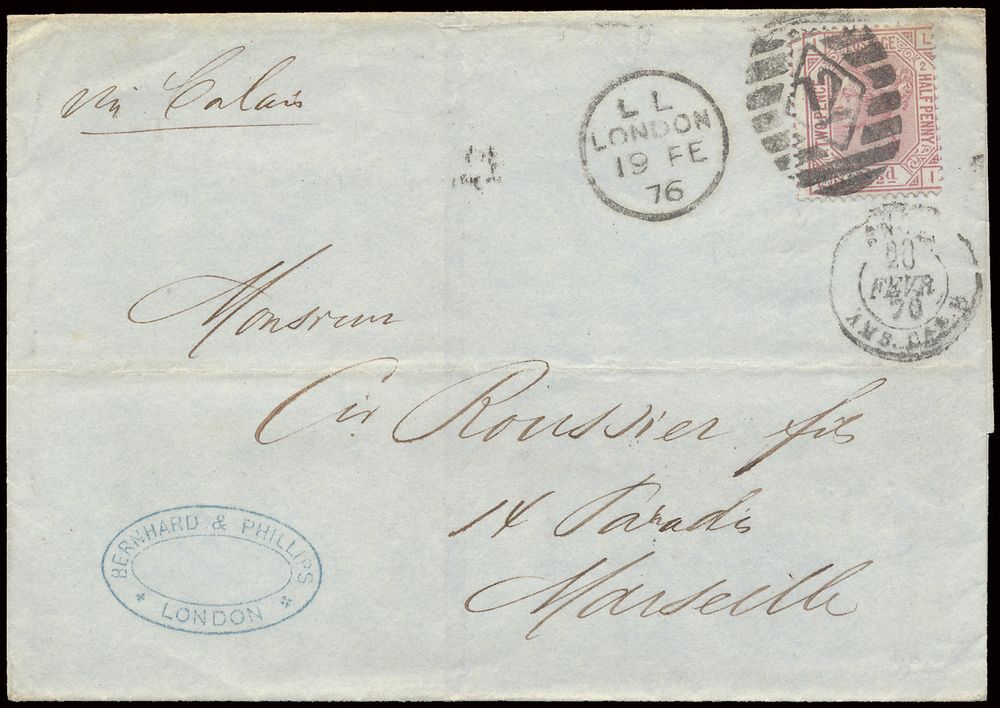 via Calais
L L
LONDON
19 FE
76
POSTAGE
TWO PENCE
HALFPENNY
L
2
I
½d
20
FEVR
76
Monsieur
Cir Roussier fils
14 Paradis
Marseille
BERNHARD & PHILLIPS
LONDON